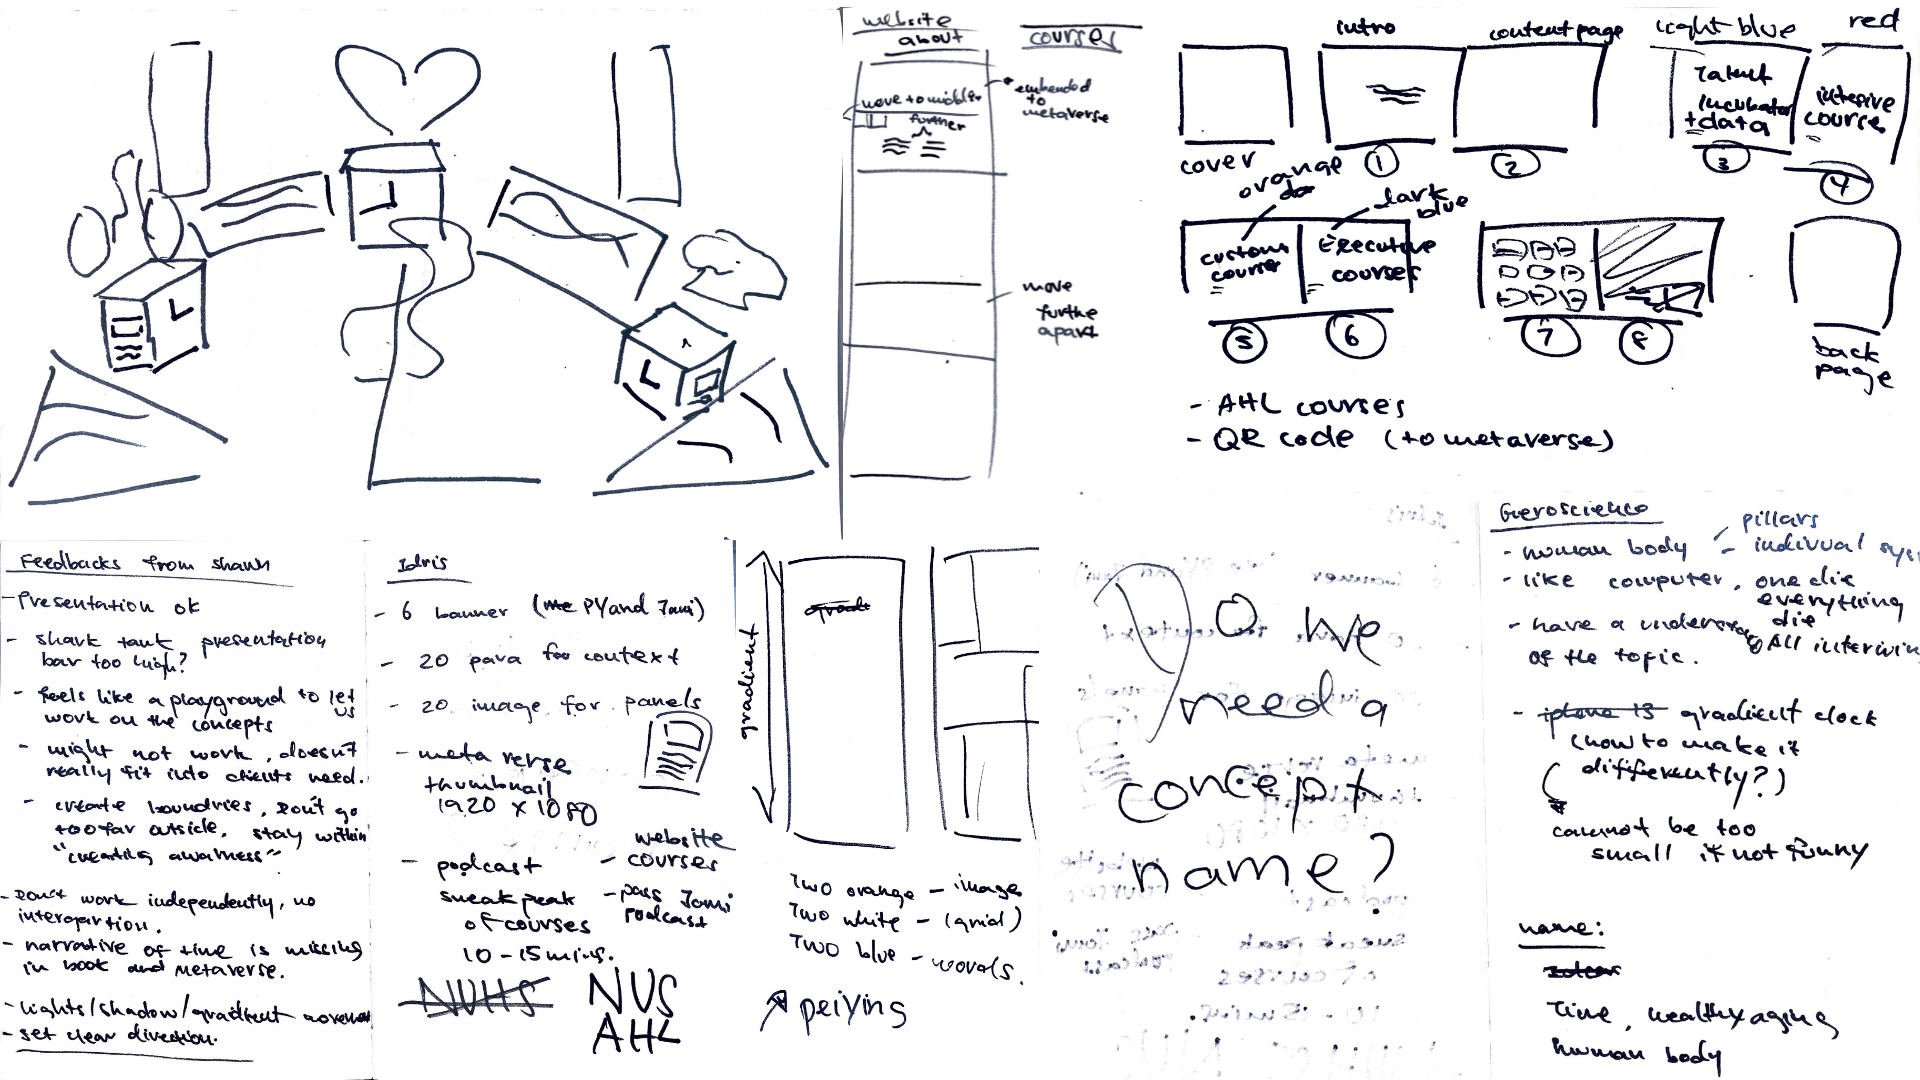 website
about
courses
move to middle
further
embended
to
metaverse
move
furthe
apart
intro
content page
light blue
red
Talent
incubator
+data
intesive
course
cover
1
2
3
4
orange
dark
blue
customs
course
Executive
courses
5
6
7
8
back
page
- AHL courses
- QR code (to metaverse)
Feedbacks from shawn
- Presentation ok
- shark tank presentation
bar too high?
- feels like a playground to let
us
work on the concepts
- might not work, doesn't
really fit into clients need.
- create boundries, don't go
too far outside, stay within
"creating awarness"
- Don't work independently, no
intergartion.
- narrative of time is missing
in book and metaverse.
- lights/shadow/gradient
- set clear direction.
Idris
- 6 banner (me PY and Jomi)
- 20 para for context
- 20 image for panels
- meta verse
thumbnail
1920 x 1080
- podcast
sneak peak
of courses
10-15 mins.
website
- courses
- pass Jomi
Podcast
NUHS
NUS
AHL
gradient
Two orange - image
Two white - (grid)
Two blue - words.
peiying
Do we
need a
concept
name?
Geroscience
pillars
- human body - indivual sys
- like computer, one die
everything
die
- have a
of the topic.
All
- iphone 13 gradient clock
(how to make it
differently?)
cannot be too
small if not funny
name:
Time, healthy aging
human body